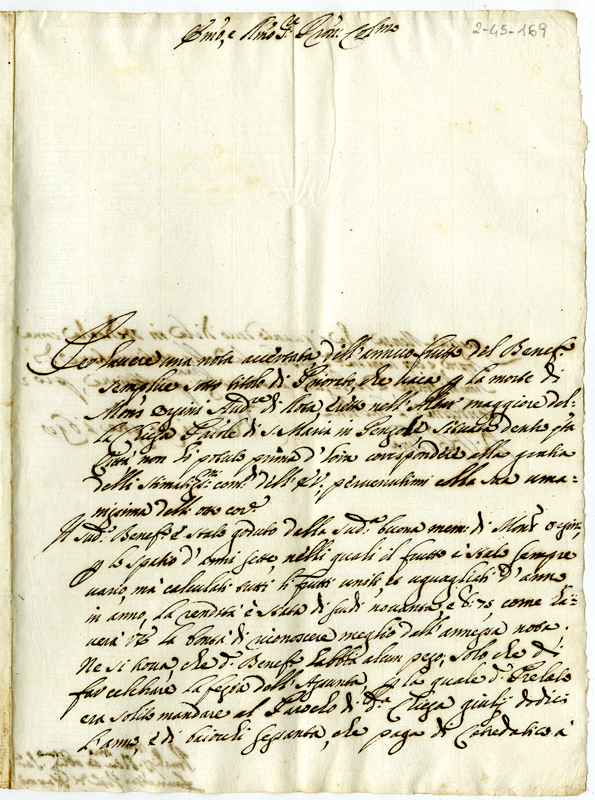 2-45-169
Em̃o, e Rm̃o Sig.re Pron: Colmo
Per havere una nota accertata dell'annuo frutto del Benef.o
semplice sotto titolo di che vaca p la morte di
Mons.r Orsini Aud.re di Rota, eretto nell'Altar maggiore del-
la Chiesa Paĩle di S. Maria in situata dentro q̃ta
Città non hò potuto prima d'hora corrispondere alla
delli stimatiss.mi com.di dell'E.V. pervenutimi colla sua uma-
nissima delli otto cor.e
Il sud.o Benef.o è stato goduto dalla sud.a buona mem: di Mons.r Orsini,
p lo spatio d'anni sette, nelli quali il frutto è stato sempre
vario, mà calculati tutti li frutti uniti, et uguagliati d'anno
in anno, la rendita è stata di scudi novanta, e b: 75, come
verà V.E. la bontà di riconoscere meglio dall'annessa nota.
Ne si trova, che d.o Benef.o habbia alcun peso, solo, che di
far celebrare la festa dell'Assunta, p la quale d.o Prelato
era solito mandare al Parocho di d.a Chiesa giulij dodici
l'anno, e di baiocchi sessanta, che paga di Catedratico à